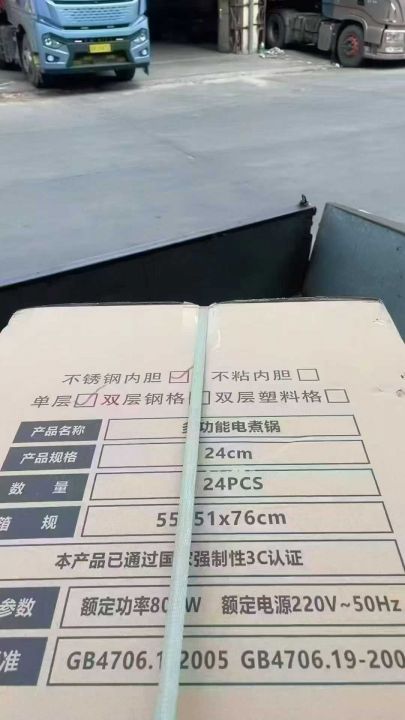 不锈钢内胆☑ 不粘内胆☐
单层☑双层钢格☐双层塑料格☐
产品名称 功能电煮锅
产品规格 24cm
数 量 24PCS
箱 规 55 51x76cm
本产品已通过国 强制性3C认证
参数 额定功率80 W 额定电源220V~50Hz
准 GB4706.1 2005 GB4706.19-200